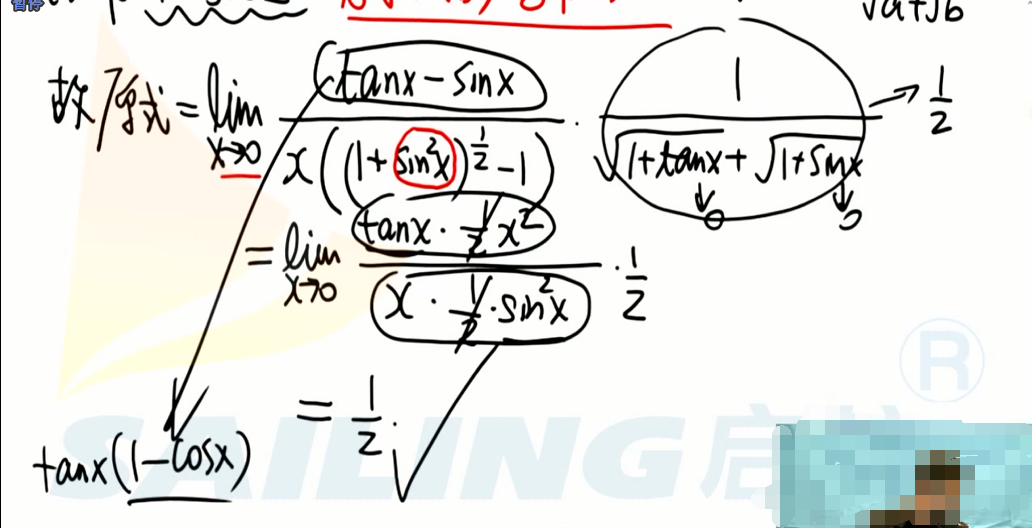 暂停
√a+√b
故/原式 = lim x→0 (tanx - sinx) / x((1+sin²x)^½ - 1) · 1 / √1+tanx + √1+sinx → 1/2
↓0 ↓0
= lim x→0 tanx · 1/2 x² / x · 1/2 · sin²x · 1/2
= 1/2.
tanx(1-cosx)
SAILING启航®